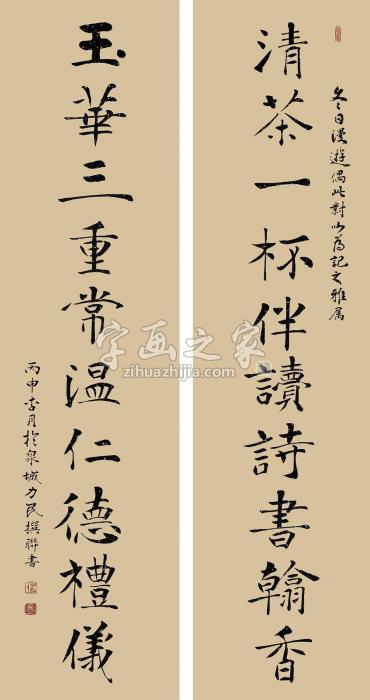 冬日漫遊偶此對以為記之雅屬
清茶一杯伴讀詩書翰香
玉華三重常温仁德禮儀
丙申杏月於泉城力民撰聯書
字画之家
zihuazhijia.com